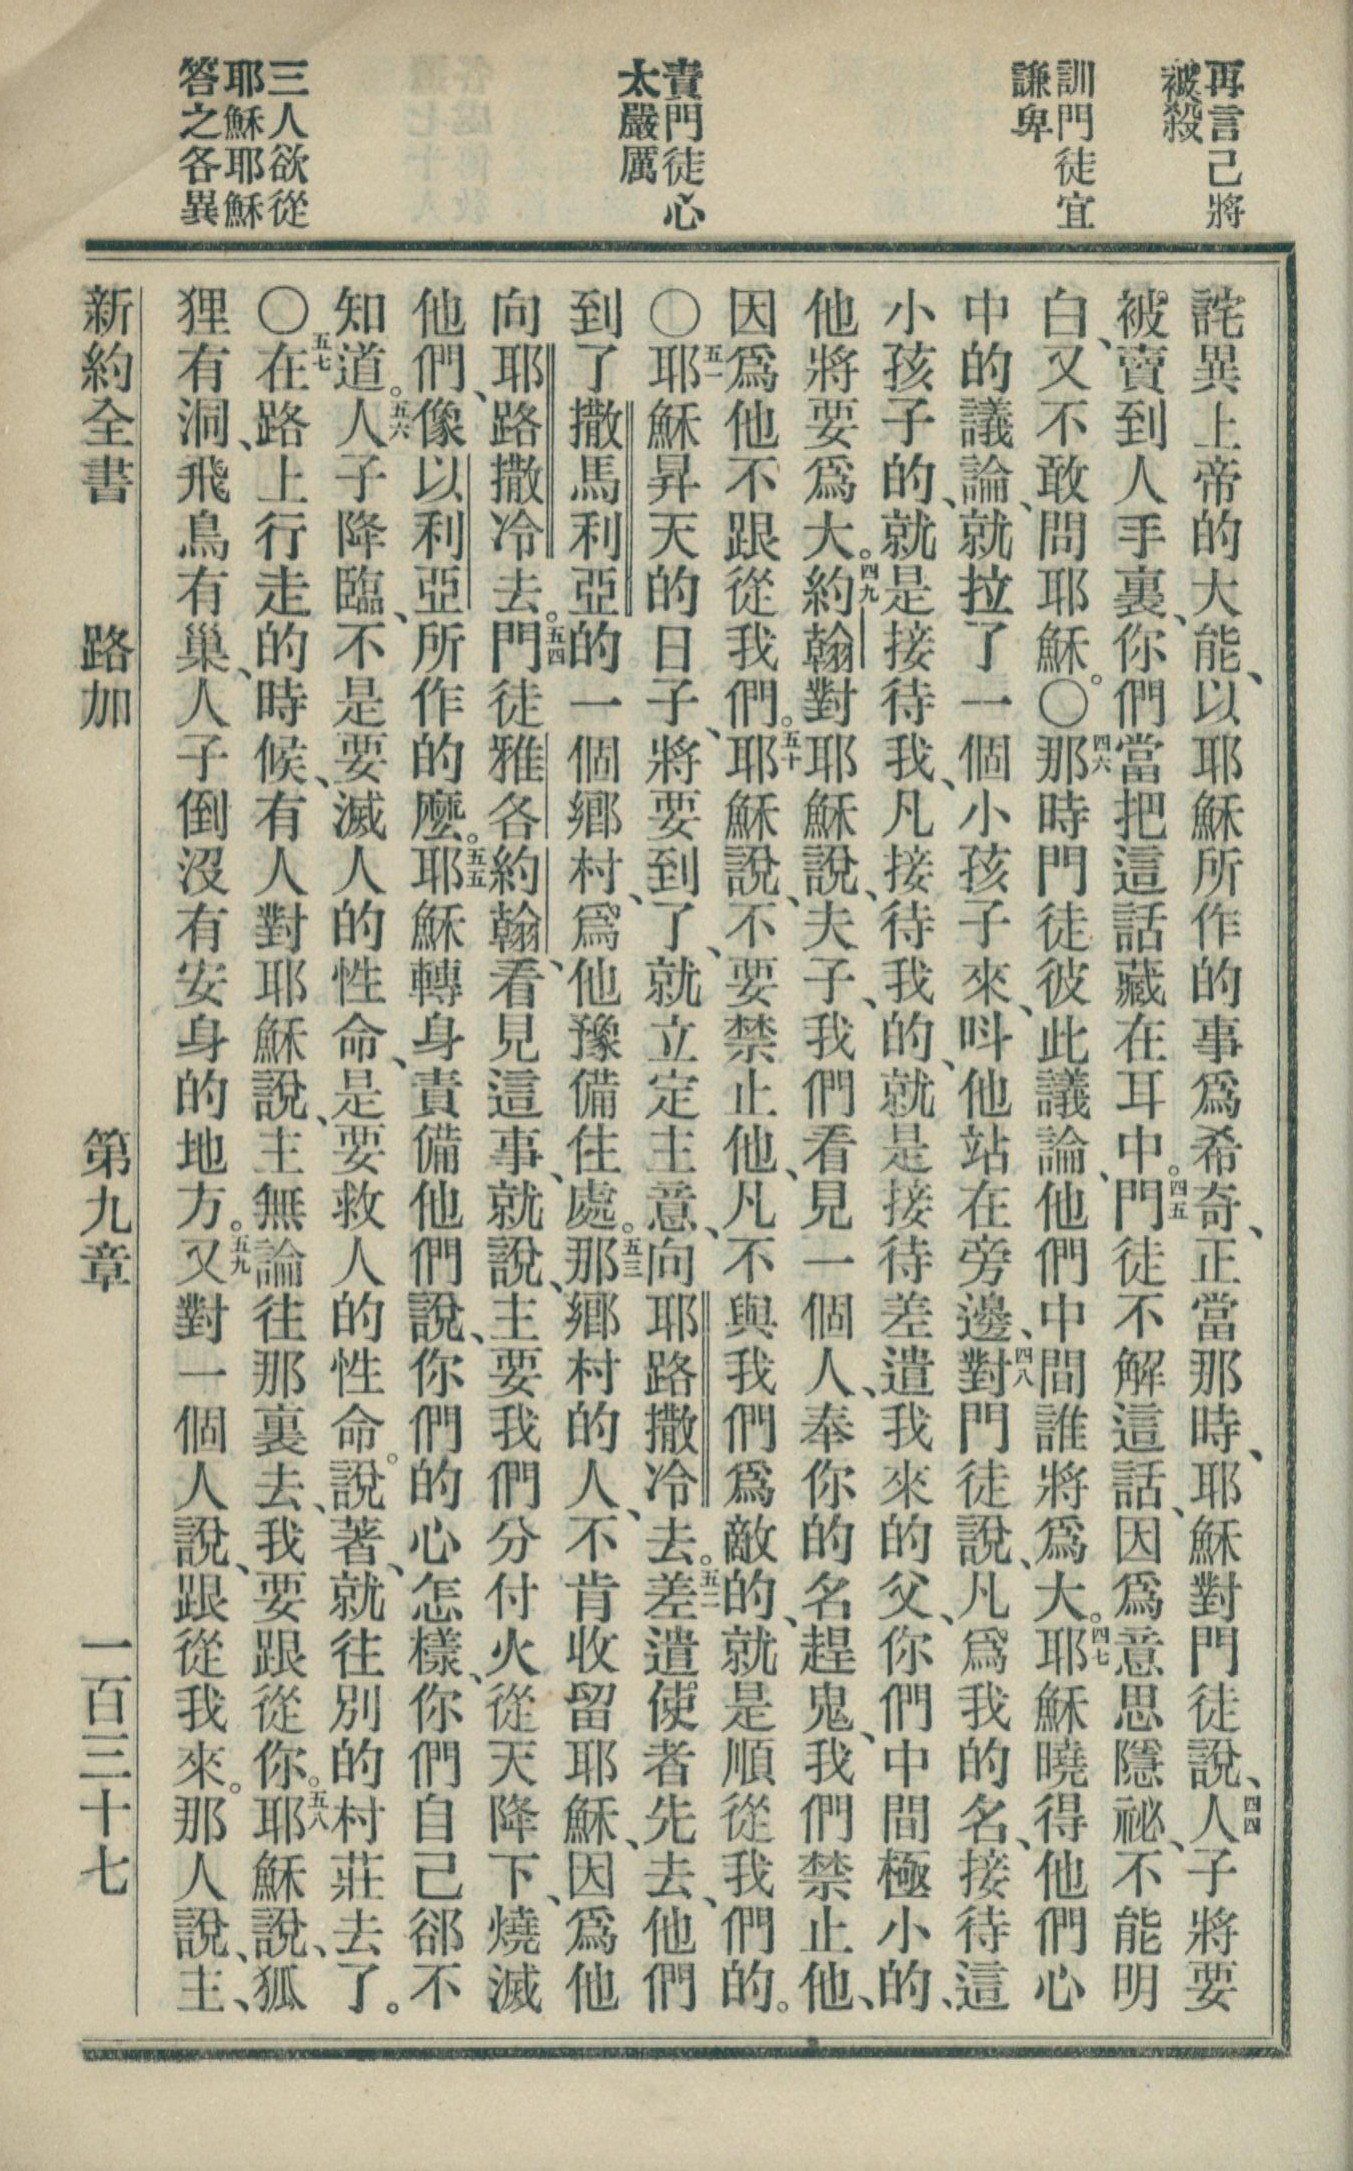 再言己將
被殺
訓門徒宜
謙卑
責門徒心
太嚴厲
三人欲從
耶穌耶穌
答之各異
詫異上帝的大能、以耶穌所作的事爲希奇、正當那時、耶穌對門徒說、四四人子將要
被賣到人手裏、你們當把這話藏在耳中。四五門徒不解這話、因爲意思隱祕、不能明
白、又不敢問耶穌。〇四六那時門徒彼此議論、他們中間誰將爲大。四七耶穌曉得他們心
中的議論、就拉了一個小孩子來、呌他站在旁邊、四八對門徒說、凡爲我的名、接待這
小孩子的、就是接待我、凡接待我的、就是接待差遣我來的父、你們中間極小的、
他將要爲大。四九約翰對耶穌說、夫子、我們看見一個人、奉你的名趕鬼、我們禁止他、
因爲他不跟從我們。五十耶穌說、不要禁止他、凡不與我們爲敵的、就是順從我們的。
〇五一耶穌昇天的日子、將要到了、就立定主意、向耶路撒冷去。五二差遣使者先去、他們
到了撒馬利亞的一個鄉村、爲他豫備住處。五三那鄉村的人、不肯收留耶穌、因爲他
向耶路撒冷去。五四門徒雅各約翰、看見這事、就說、主要我們分付火從天降下、燒滅
他們、像以利亞所作的麼。五五耶穌轉身、責備他們說、你們的心怎樣、你們自己郤不
知道。五六人子降臨、不是要滅人的性命、是要救人的性命。說著、就往別的村莊去了。
〇五七在路上行走的時候、有人對耶穌說、主無論往那裏去、我要跟從你。五八耶穌說、狐
狸有洞、飛鳥有巢、人子倒沒有安身的地方。五九又對一個人說、跟從我來。那人說、主、
新約全書 路加 第九章 一百三十七